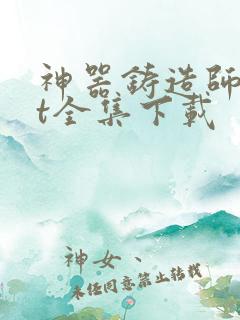 神器铸造师
t全集下载
神女、
未经同意禁止转载